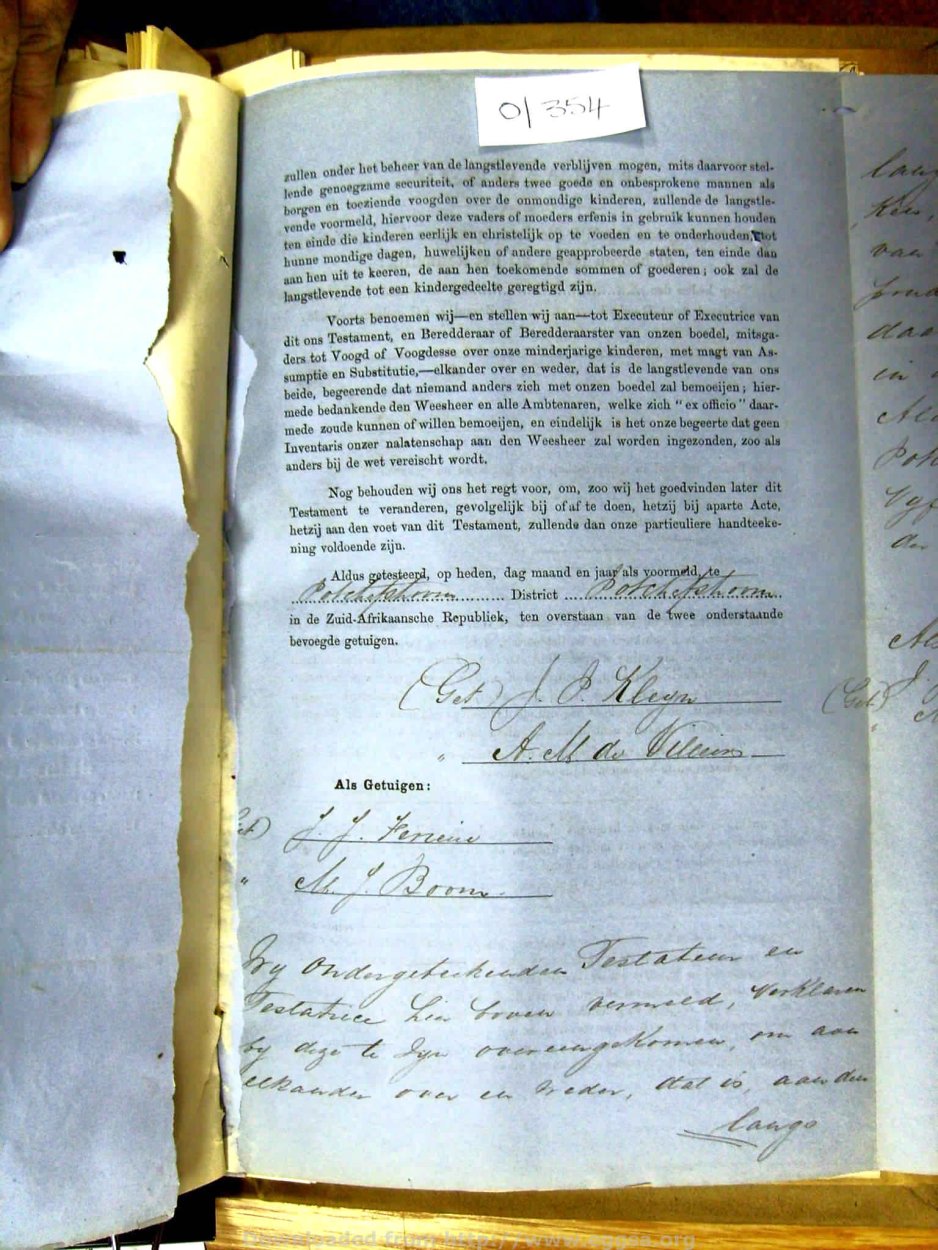 0/354
zullen onder het beheer van de langstlevende verblijven mogen, mits daarvoor stel-
lende genoegzame securiteit, of anders twee goede en onbesprokene mannen als
borgen en toeziende voogden over de onmondige kinderen, zullende de langstle-
vende voormeld, hiervoor deze vaders of moeders erfenis in gebruik kunnen houden
ten einde die kinderen eerlijk en christelijk op te voeden en te onderhouden, tot
hunne mondige dagen, huwelijken of andere geapprobeerde staten, ten einde dan
aan hen uit te keeren, de aan hen toekomende sommen of goederen; ook zal de
langstlevende tot een kindergedeelte geregtigd zijn.
Voorts benoemen wij—en stellen wij aan—tot Executeur of Executrice van
dit ons Testament, en Beredderaar of Beredderaarster van onzen boedel, mitsga-
ders tot Voogd of Voogdesse over onze minderjarige kinderen, met magt van As-
sumptie en Substitutie,—elkander over en weder, dat is de langstlevende van ons
beide, begeerende dat niemand anders zich met onzen boedel zal bemoeijen; hier-
mede bedankende den Weesheer en alle Ambtenaren, welke zich "ex officio" daar-
mede zoude kunnen of willen bemoeijen, en eindelijk is het onze begeerte dat geen
Inventaris onzer nalatenschap aan den Weesheer zal worden ingezonden, zoo als
anders bij de wet vereischt wordt.
Nog behouden wij ons het regt voor, om, zoo wij het goedvinden later dit
Testament te veranderen, gevolgelijk bij of af te doen, hetzij bij aparte Acte,
hetzij aan den voet van dit Testament, zullende dan onze particuliere handteeke-
ning voldoende zijn.
Aldus getesteerd, op heden, dag maand en jaar als voormeld, te
Potchefstroom District Potchefstroom
in de Zuid-Afrikaansche Republiek, ten overstaan van de twee onderstaande
bevoegde getuigen.
(Get) J. P. Kleyn
" A. M. de Villiers
Als Getuigen:
J. J. Ferreira
" M. J. Boom
Wy Ondergeteekenden Testateur en
Testatrice hier boven vermeld, verklaren
by deze te zyn overeengekomen, om aan
elkander over en weder, dat is, aan den
langs
lang
van
daa
in
Potc
Vyf
der
Als
(Get) J.
"
Downloaded from http://www.eggsa.org